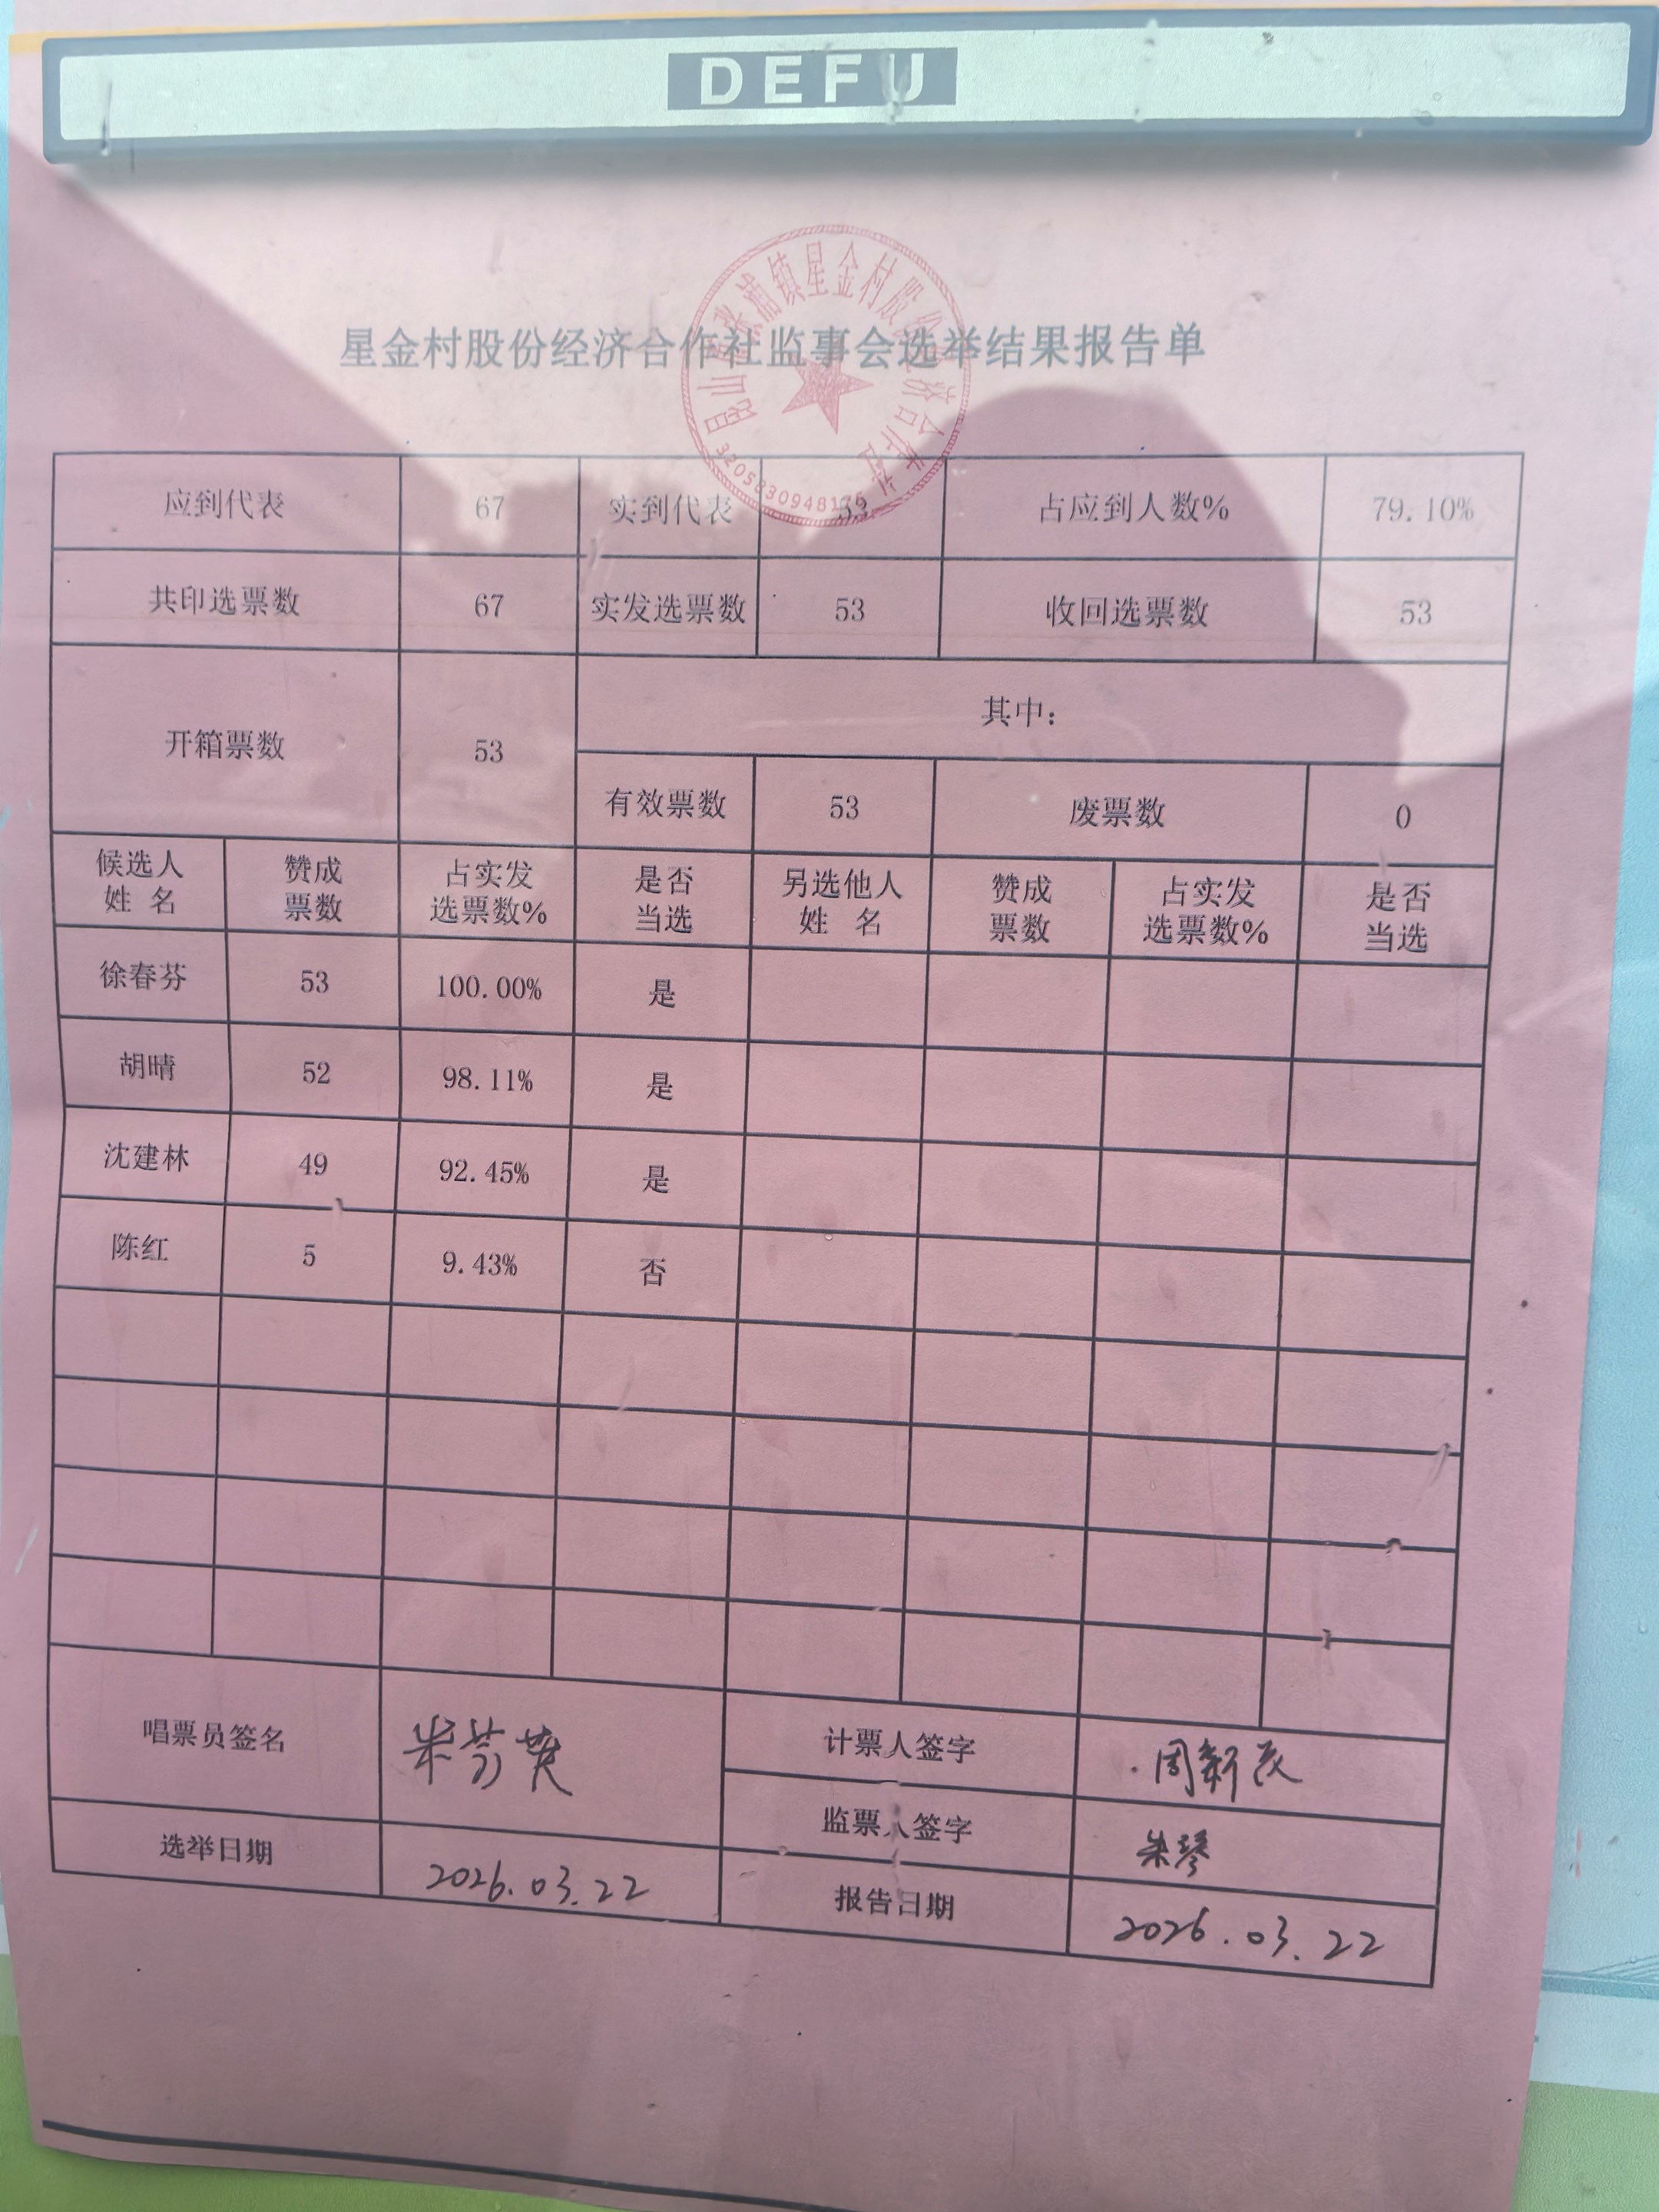 DEFU
昆山 浦镇星金村股份经济合作社
星金村股份经济合作社监事会选举结果报告单
应到代表 67 实到代表 53 占应到人数% 79.10%
共印选票数 67 实发选票数 53 收回选票数 53
开箱票数 53 其中：
有效票数 53 废票数 0
候选人 赞成 占实发 是否 另选他人 赞成 占实发 是否
姓 名 票数 选票数% 当选 姓 名 票数 选票数% 当选
徐春芬 53 100.00% 是
胡晴 52 98.11% 是
沈建林 49 92.45% 是
陈红 5 9.43% 否
唱票员签名 朱芬英 计票人签字 周新
监票人签字 朱琴
选举日期 2026.03.22 报告日期 2026.03.22